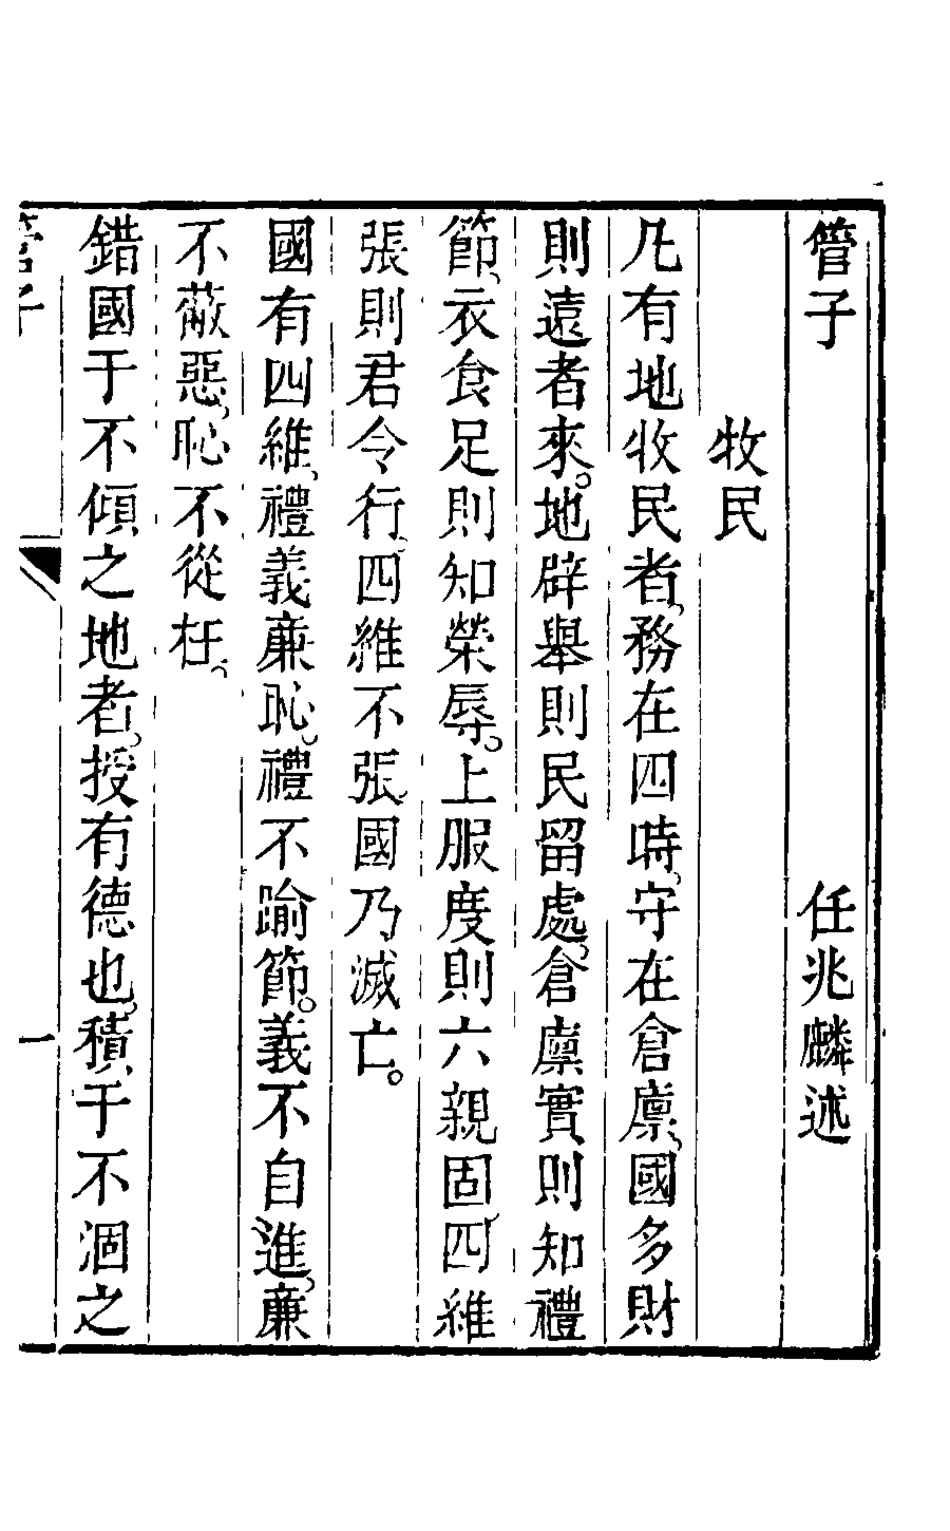 管子　任兆麟述
牧民
凡有地牧民者、務在四時、守在倉廪、國多財
則遠者來。地辟舉則民留處、倉廪實則知禮
節、衣食足則知榮辱。上服度則六親固、四維
張則君令行、四維不張、國乃滅亡。
國有四維、禮義廉恥。禮不踰節。義不自進、廉
不蔽惡、恥不從枉。
錯國于不傾之地者、授有德也、積于不涸之
管子
一